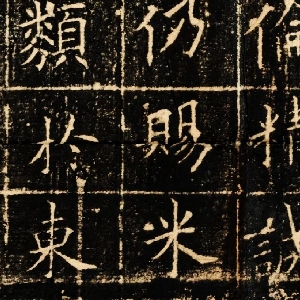 倫精誠
仍賜米
類於東